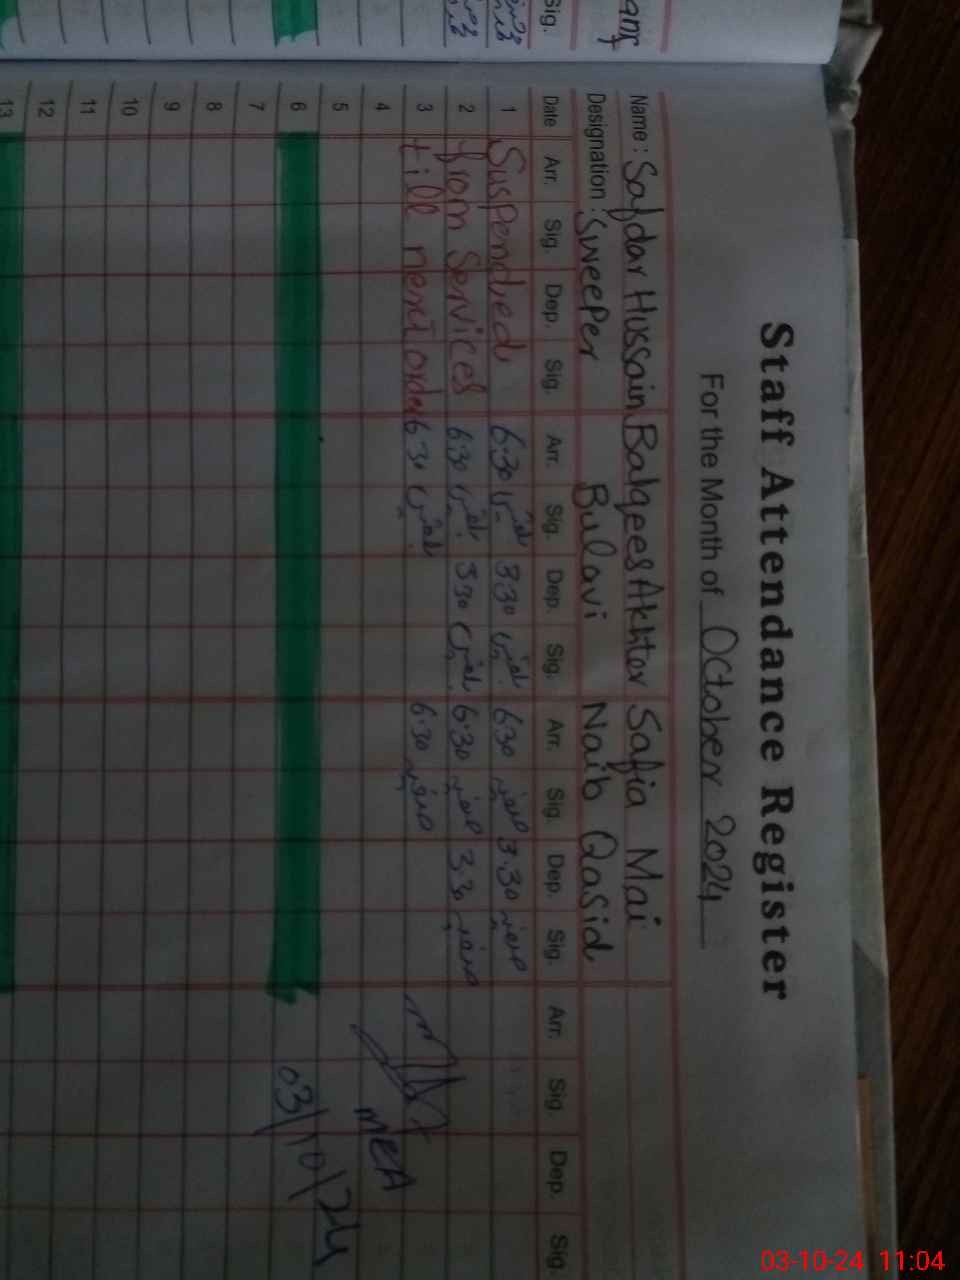 Staff Attendance Register
For the Month of October 2024
Name : Safdar Hussain Balqees Akhter Safia Mai
Designation : Sweeper Bulavi Naib Qasid
Date Arr. Sig. Dep. Sig. Arr. Sig. Dep. Sig. Arr. Sig. Dep. Sig. Arr. Sig. Dep. Sig.
1 Suspended 6:30 بلقیس 3:30 بلقیس 6:30 صفیہ 3:30 صفیہ
2 from Services 6:30 بلقیس 3:30 بلقیس 6:30 صفیہ 3:30 صفیہ
3 till next order 6:30 بلقیس 6:30 صفیہ
4 MEA
5
6 03/10/24
7
8
9
10
11
12
13
Sig.
03-10-24 11:04